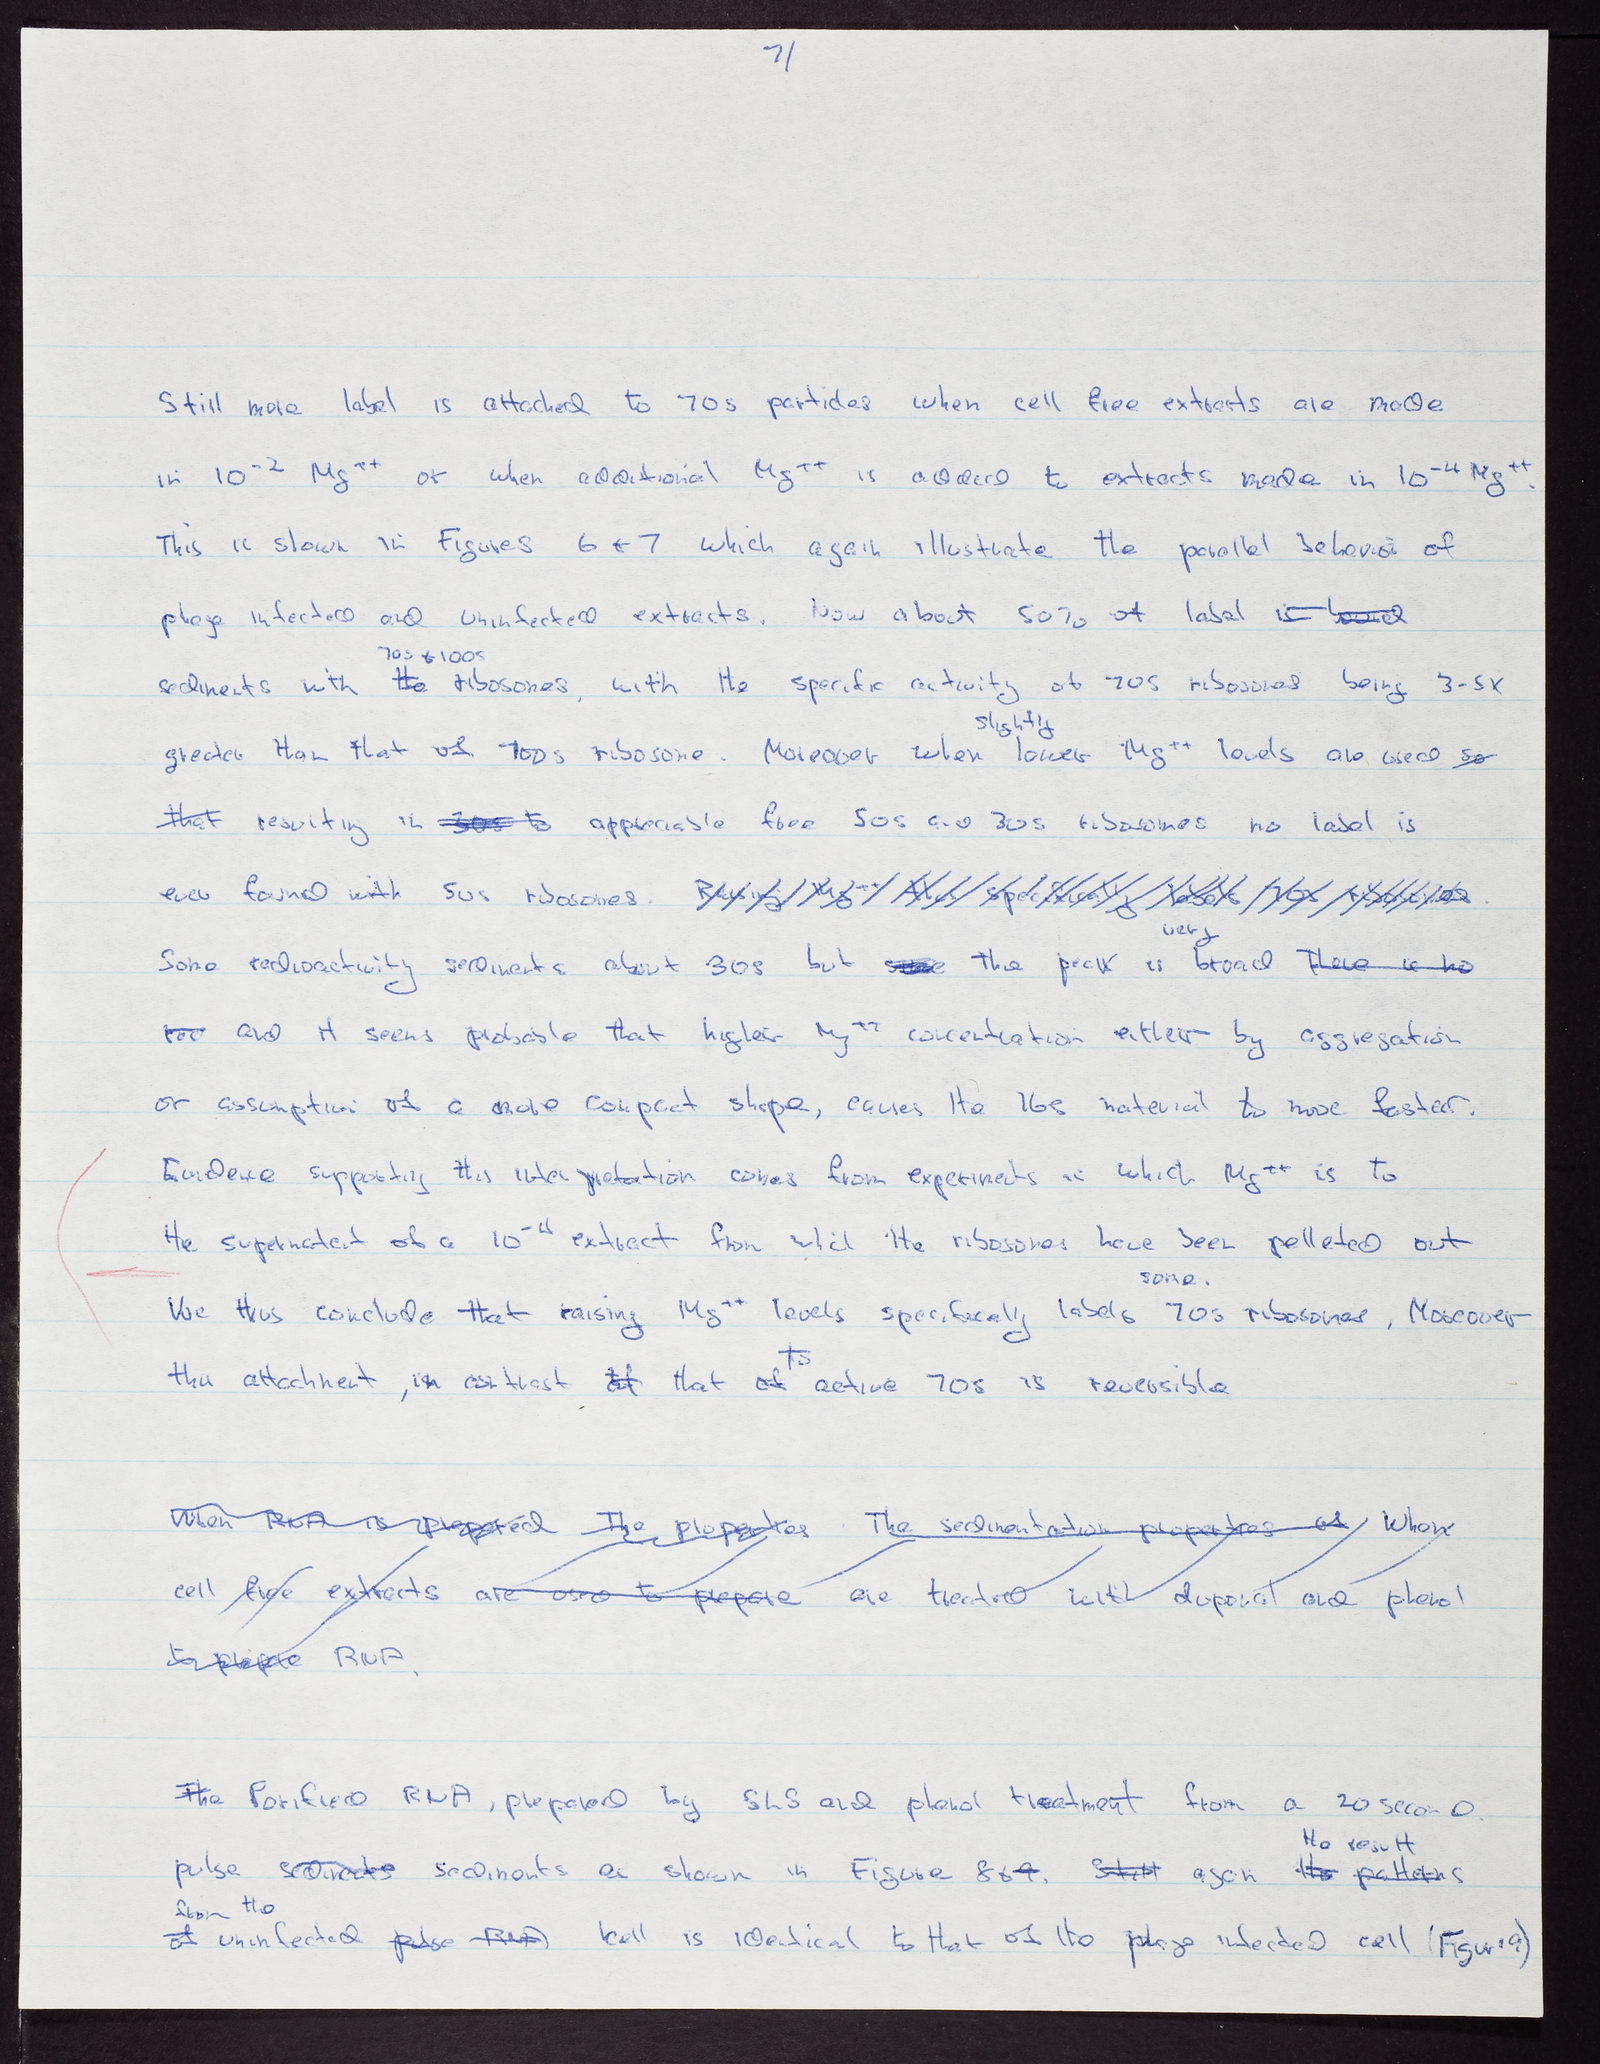 7/
Still more label is attached to 70s particles when cell free extracts are made
in 10⁻² Mg⁺⁺ or when additional Mg⁺⁺ is added to extracts made in 10⁻⁴ Mg⁺⁺.
This is shown in Figures 6 & 7 which again illustrate the parallel behavior of
phage infected and uninfected extracts. Now about 50% of label is bound
70s & 100s
sediments with the ribosomes, with the specific activity of 70s ribosomes being 3-5X
slightly
greater than that of 100s ribosome. Moreover when lower Mg⁺⁺ levels are used so
that resulting in 30s to appreciable free 50s and 30s ribosomes no label is
ever found with 50s ribosomes. Raising Mg⁺⁺ thus specifically labels 70s ribosomes.
very
Some radioactivity sediments about 30s but the peak is broad There is no
and it seems probable that higher Mg⁺⁺ concentration either by aggregation
or assumption of a more compact shape, causes the 16s material to move faster.
Evidence supporting this interpretation comes from experiments in which Mg⁺⁺ is to
the supernatant of a 10⁻⁴ extract from which the ribosomes have been pelleted out
some.
We thus conclude that raising Mg⁺⁺ levels specifically labels 70s ribosomes, Moreover
to
this attachment, in contrast that of active 70s is reversible
When RNA is prepared The properties The sedimentation properties of When
cell free extracts are used to prepare are treated with duponal and phenol
to prepare RNA.
The Purified RNA, prepared by SLS and phenol treatment from a 20 second
the result
pulse sediments sediments as shown in Figure 8&9. Still again the patterns
from the
of uninfected pulse RNA cell is identical to that of the phage infected cell (Figure 9)